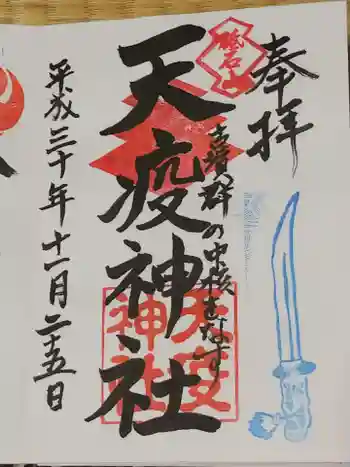 奉拝
砥石山
古墳群の中核をなす
天疫神社
天疫神社
平成三十年十一月二十五日